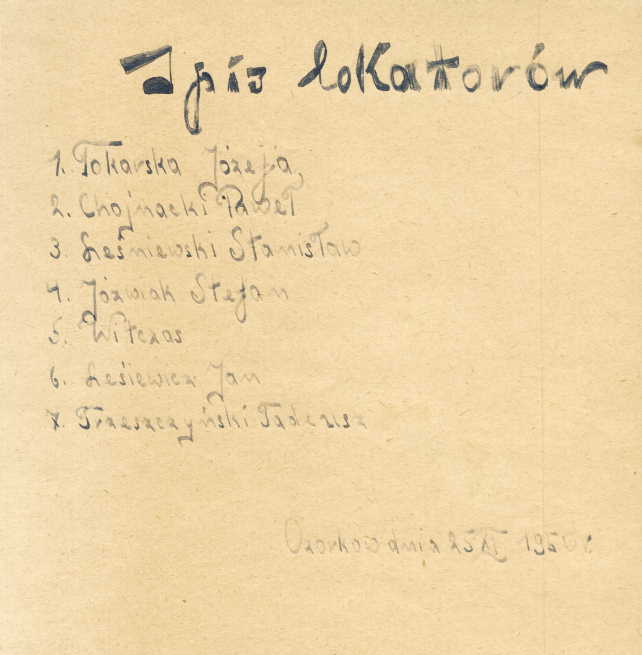 Spis lokatorów
1. Tokarska Józefa
2. Chojnacki Paweł
3. Leśniewski Stanisław
4. Józwiak Stefan
5. Witczas
6. Leśiewicz Jan
7. Trzeszczyński Tadeusz
Ozorków dnia 25 XI